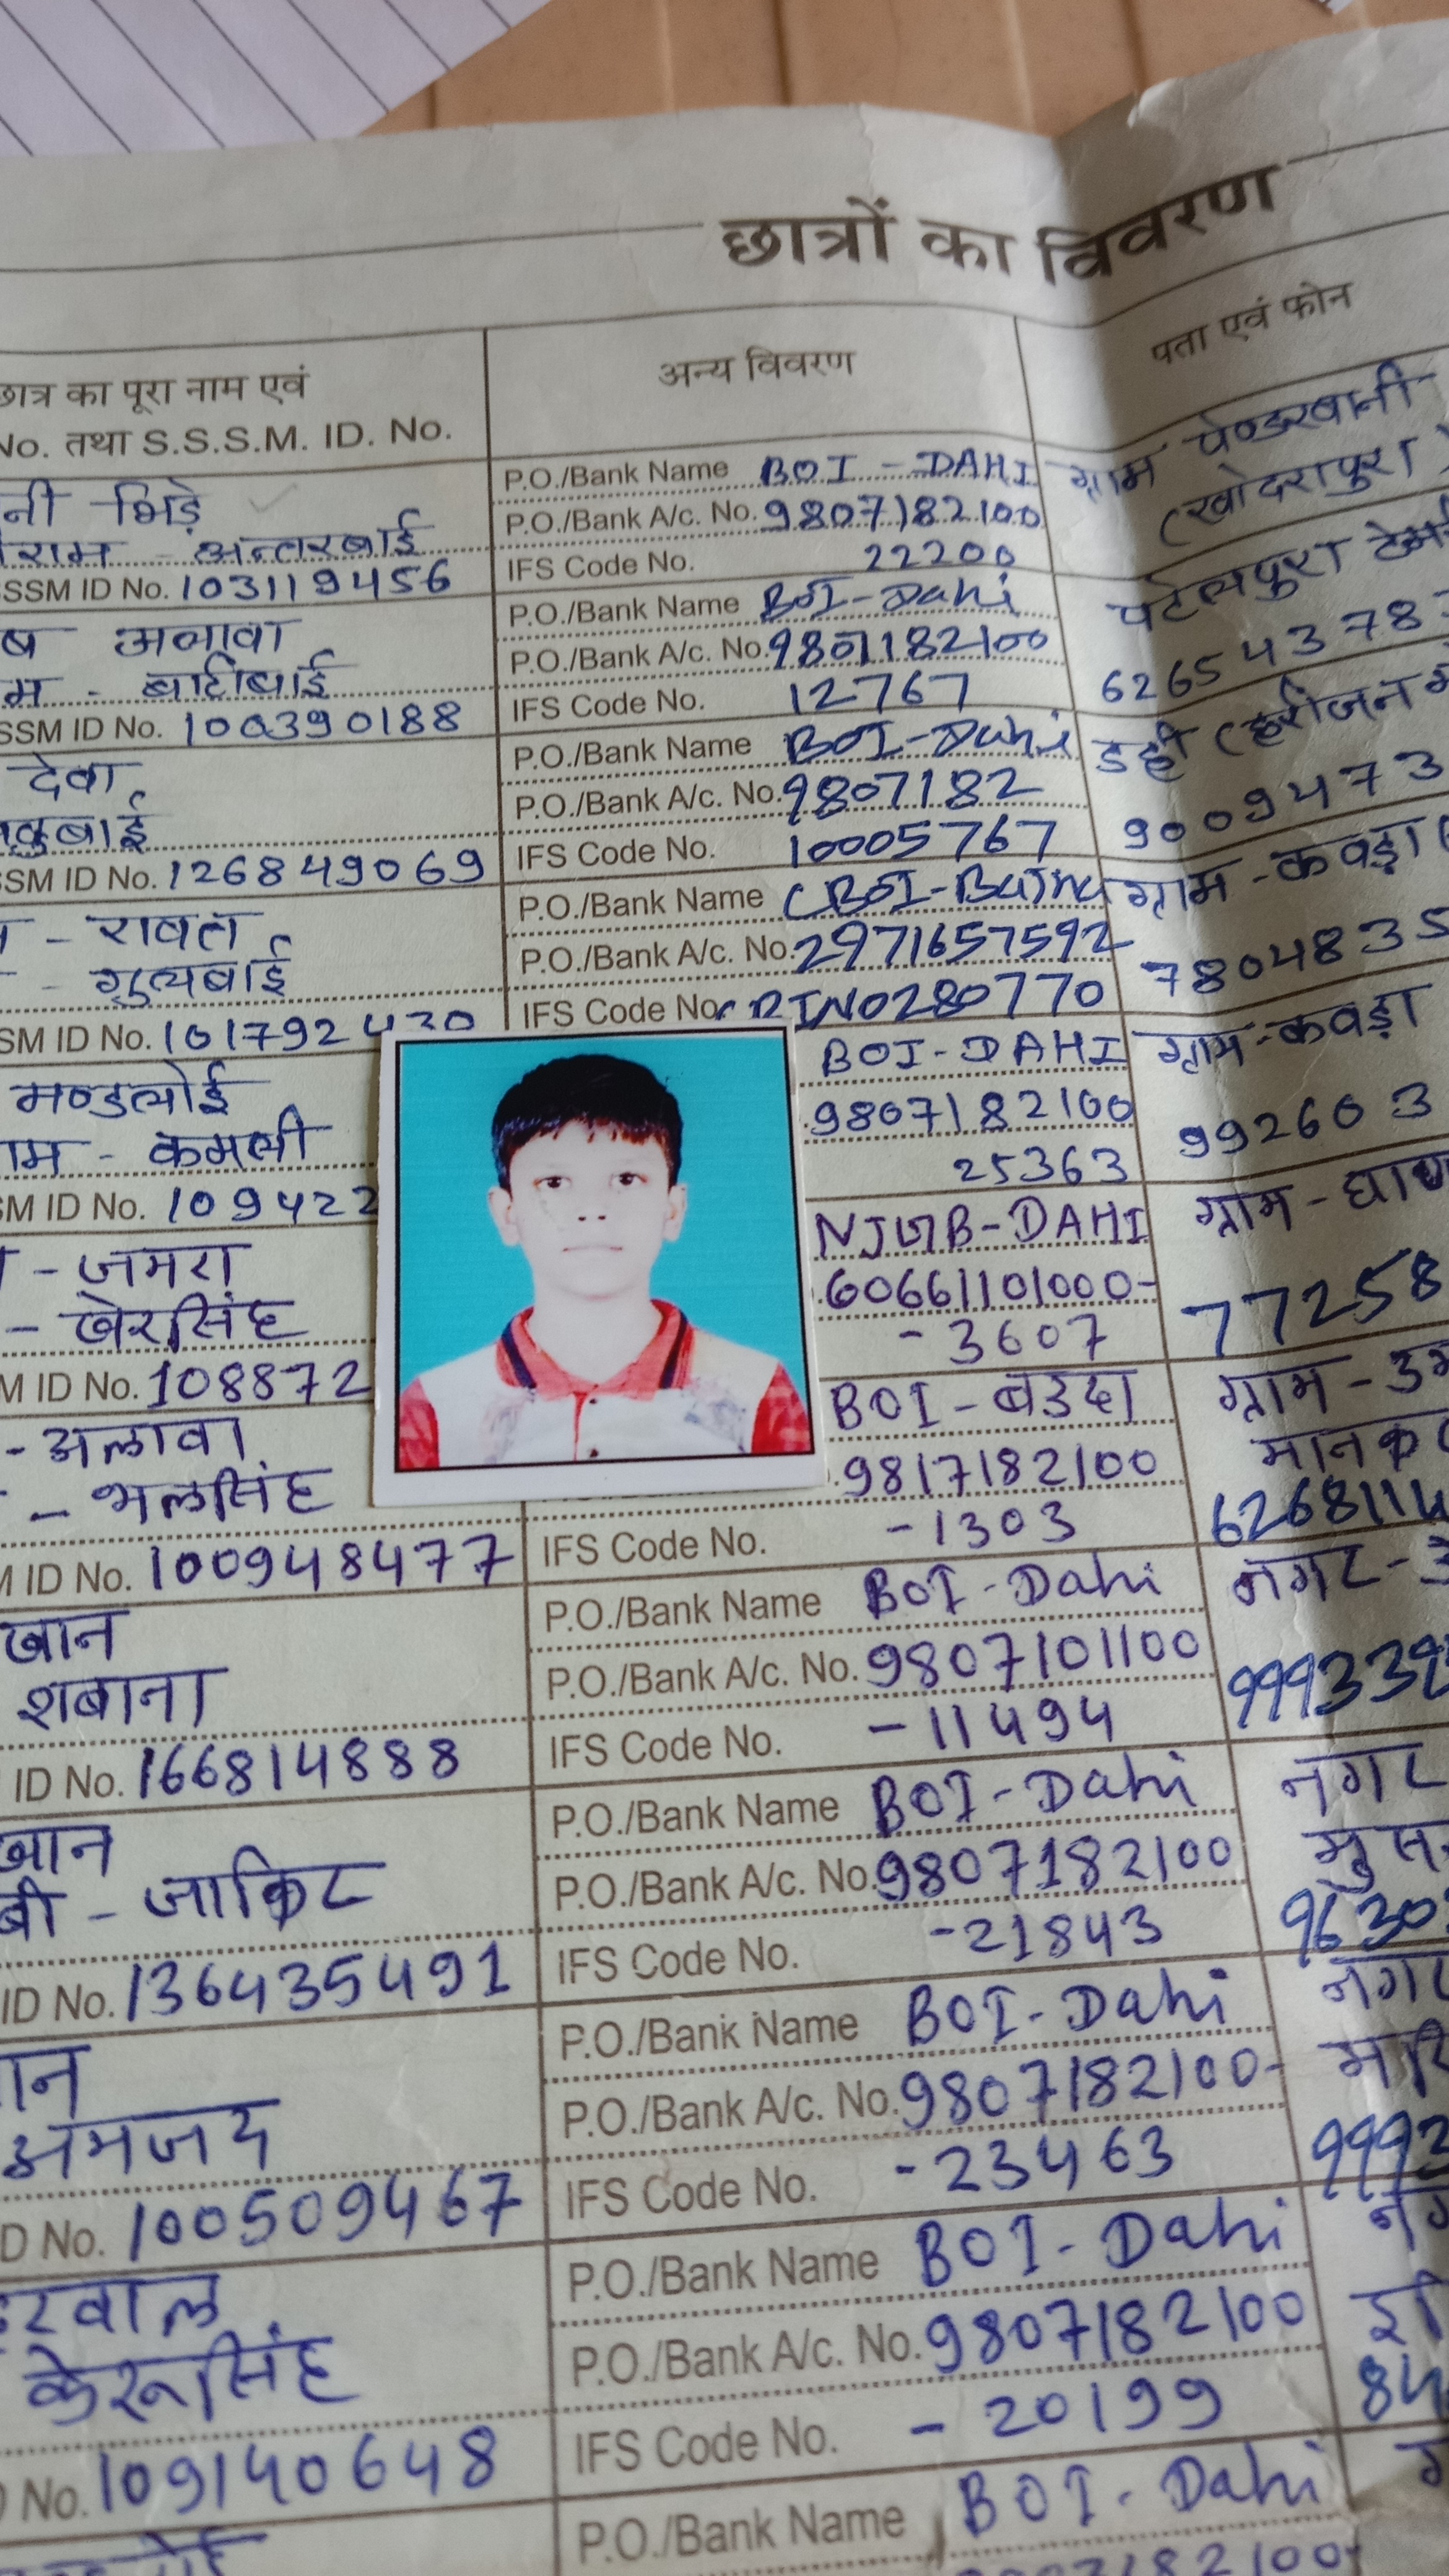 छात्रों का विवरण
छात्र का पूरा नाम एवं
No. तथा S.S.S.M. ID. No.
अन्य विवरण
पता एवं फोन
नी भिड़े
राम - अन्तरबाई
SSM ID No. 103119456
P.O./Bank Name BOI - DAHI
P.O./Bank A/c. No. 9807182100
IFS Code No. 22200
ग्राम
(खोदरापुरा)
ष अलावा
म -
SSM ID No. 100390188
P.O./Bank Name BOI-Dahi
P.O./Bank A/c. No. 9807182100
IFS Code No. 12767
पटेलपुरा
62654378
देवा
SSM ID No. 126849069
P.O./Bank Name BOI-Dahi
P.O./Bank A/c. No. 9807182
IFS Code No. 10005767
डही (हरीजन
9009473
- रावत
SM ID No. 101792430
P.O./Bank Name CBOI-
P.O./Bank A/c. No. 2971657592
IFS Code No. CBIN0280770
ग्राम - कवड़ा
7804835
मण्डलोई
म - कमली
SM ID No. 109422
BOI-DAHI
9807182100
25363
ग्राम-कवड़ा
992603
- जमरा
- खेरसिंह
M ID No. 108872
NJGB-DAHI
60661101000-
-3607
ग्राम -
77258
- अलावा
- भलसिंह
M ID No. 100948477
BOI - बडदा
9817182100
IFS Code No. -1303
ग्राम -
6268114
खान
शबाना
ID No. 166814888
P.O./Bank Name BOI-Dahi
P.O./Bank A/c. No. 9807101100
IFS Code No. -11494
नगर -
99933
खान
बी - जाकिर
ID No. 136435491
P.O./Bank Name BOI-Dahi
P.O./Bank A/c. No. 9807182100
IFS Code No. -21843
नगर
9630
ान
अमजद
D No. 100509467
P.O./Bank Name BOI-Dahi
P.O./Bank A/c. No. 9807182100-
IFS Code No. -23463
नगर
9993
रवाल
केरूसिंह
No. 109140648
P.O./Bank Name BOI-Dahi
P.O./Bank A/c. No. 9807182100
IFS Code No. - 20199
84
P.O./Bank Name BOI-Dahi